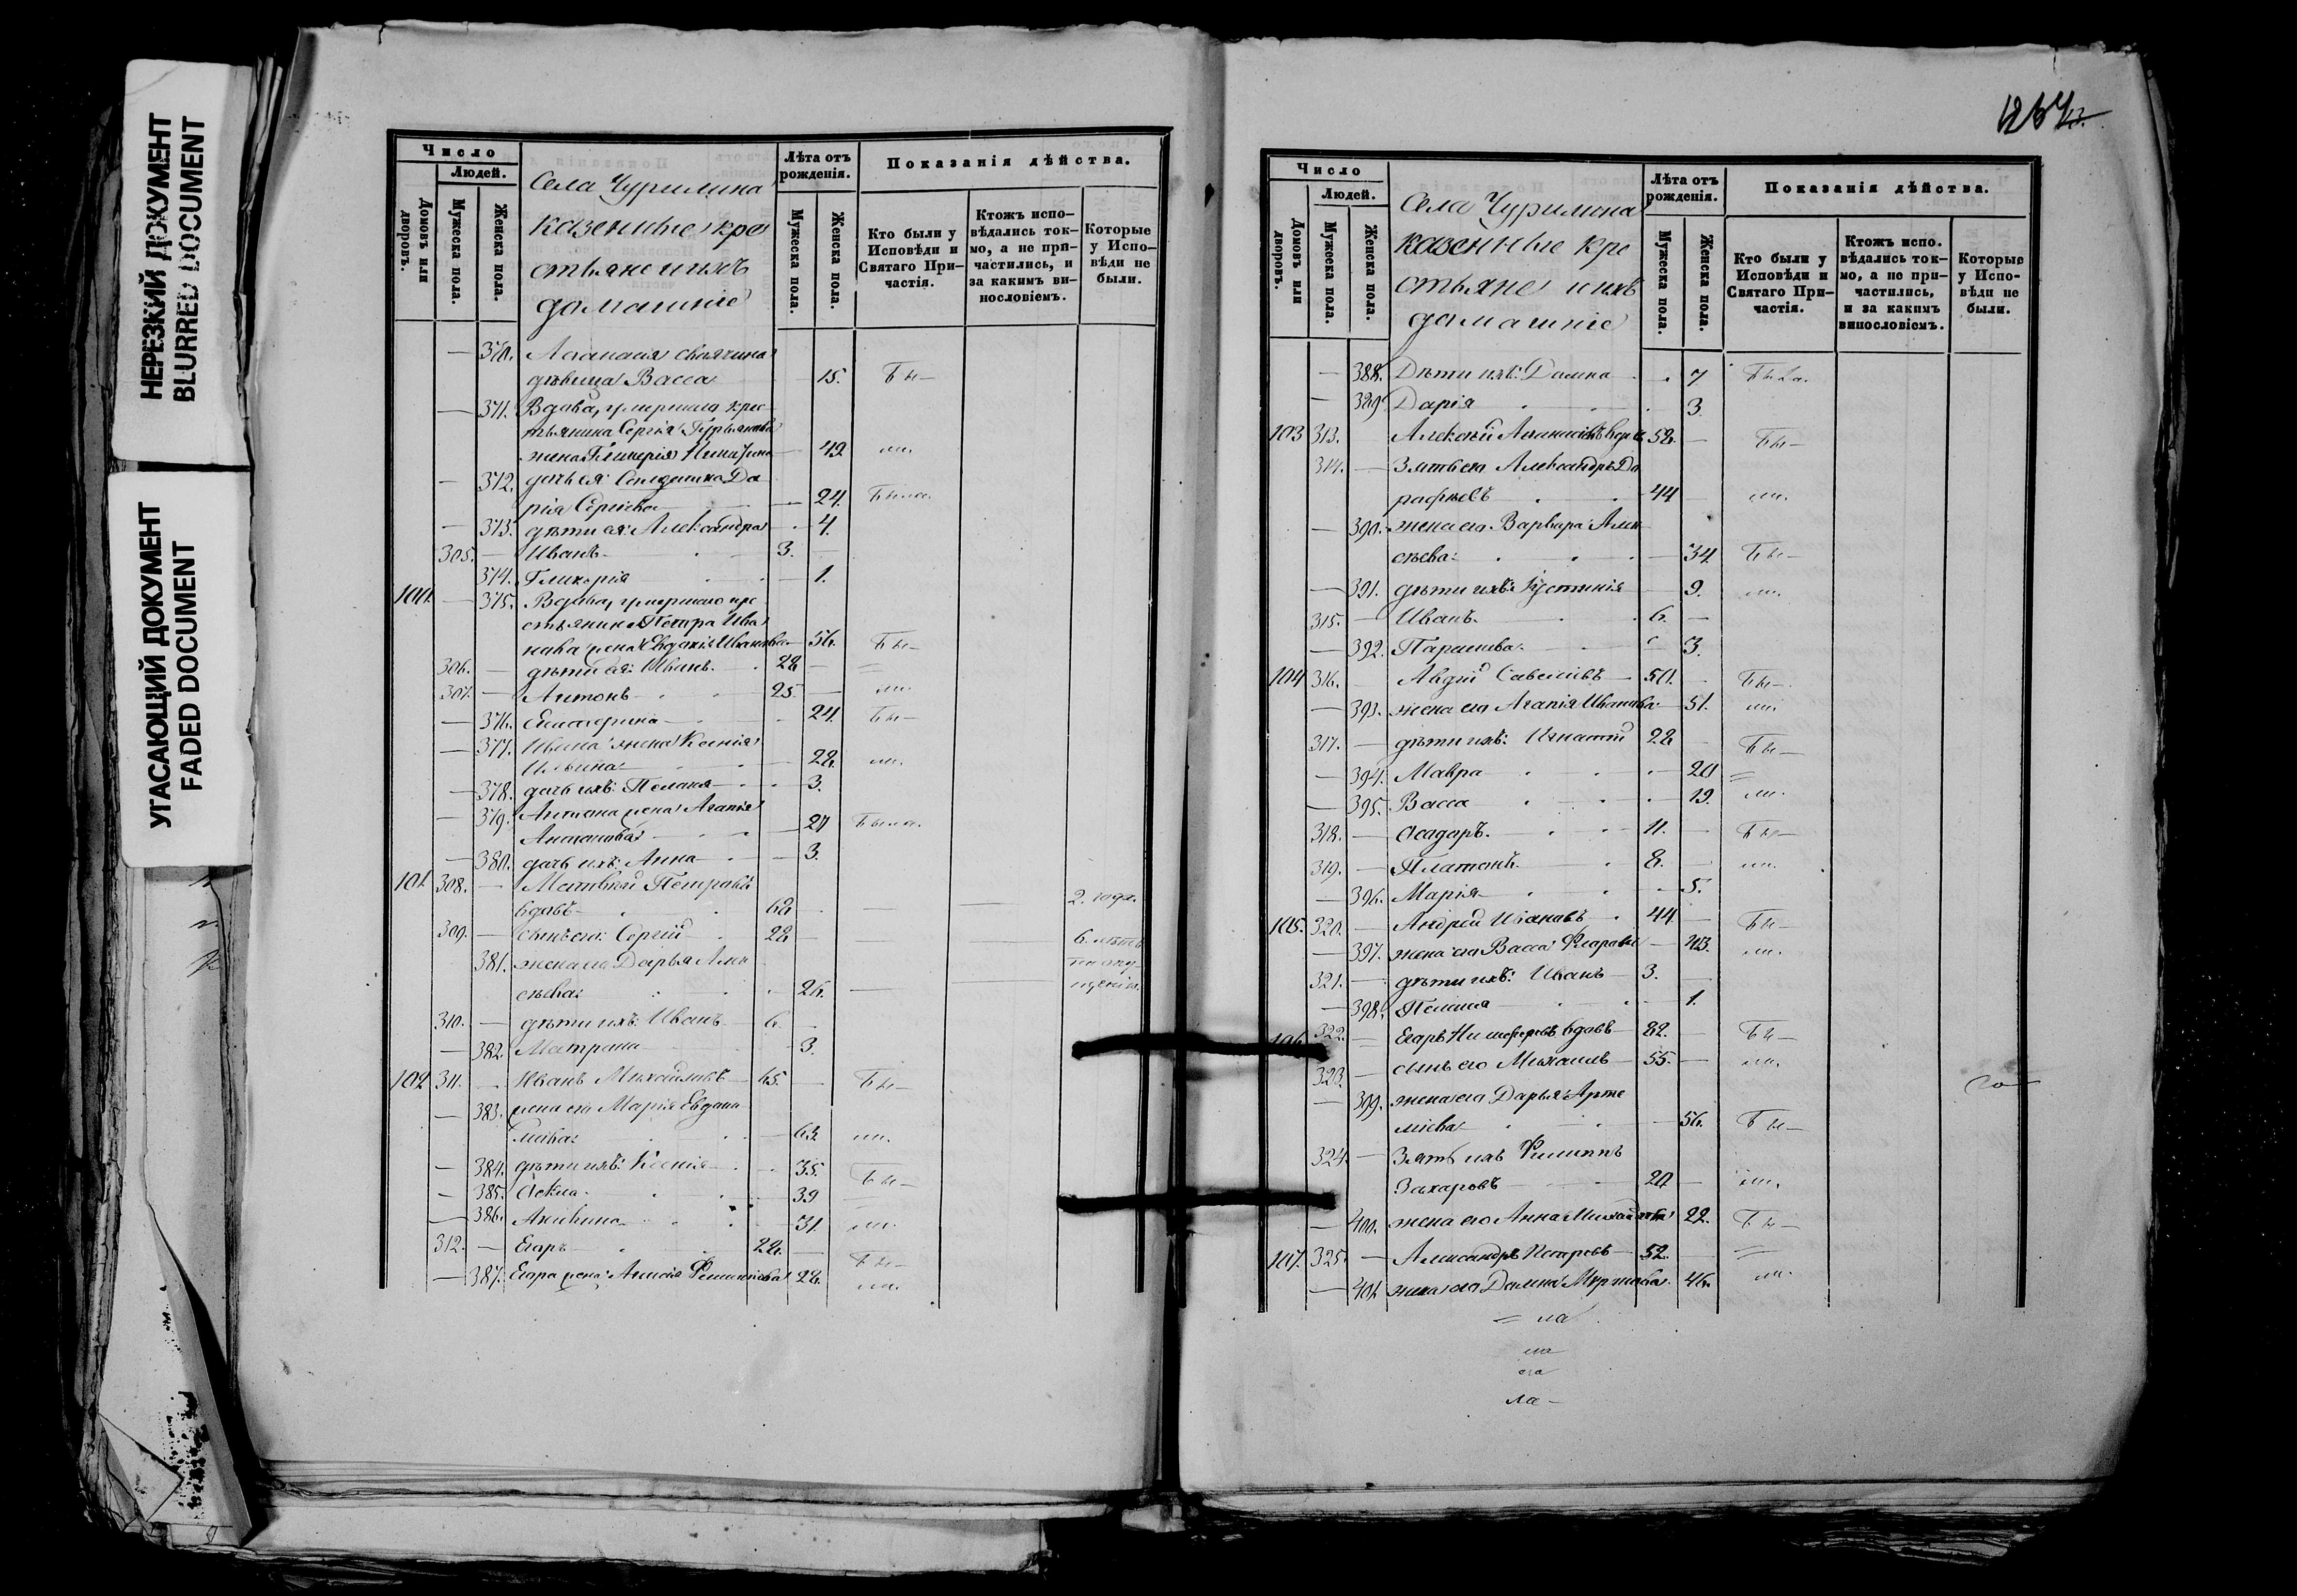 НЕРЕЗКИЙ ДОКУМЕНТ
BLURRED DOCUMENT
УГАСАЮЩИЙ ДОКУМЕНТ
FADED DOCUMENT
Число
Людей.
Домовъ или дворовъ.
Мужеска пола.
Женска пола.
Села Чурилина
казенные кре
стьяне и ихъ
домашніе
Лѣта отъ рожденія.
Мужеска пола.
Женска пола.
Показанія дѣйства.
Кто были у Исповѣди и Святаго При-частія.
Ктожъ испо-вѣдались ток-мо, а не при-частились, и за какимъ ви-нословіемъ.
Которые у Испо-вѣди не были.
— 370.
дѣвица Васса 15. Бы—
— 371. Вдова, умершаго крес
тьянина Сергія Гурьянова
жена Гликерія 49. ли.
— 372. дочь ея Солдатка Да
рія Сергіева — 24. Была.
— 373. дѣти ея: Александра — 4.
305. — Иванъ 3. —
374. Гликерія — 1.
100. — 375. Вдова, умершаго кре
стьянина Петра Ива
нова жена Евдокія Иванова — 56. Бы—
306. — дѣти ея: Иванъ 28 — =
307. — Антонъ 25. — ли.
— 376. Екатерина — 24. Бы—
— 377. Ивана жена Ксенія
Ильина — 28. ли.
— 378. дочь ихъ: Пелагія — 3.
— 379. Антона жена Агапія
— 24 Была.
— 380. дочь ихъ: Анна — 3.
101. 308. — Матвѣй Петровъ
вдовъ 62. — — — 2. года.
309. — сынъ его: Сергій 28 — 6. лѣтъ
381. жена его Дарья Але
ксѣева — 26. — —
310. — дѣти ихъ: Иванъ 6. —
— 382. Матрона — 3.
102 311. — Иванъ Михайловъ 65. — Бы—
— 383. жена его Марія Евдоки
мова — 63. ли.
— 384. дѣти ихъ: Ксенія 35. Бы—
— 385. Ѳекла 39
— 386. Акилина 31. ли.
312. — Егоръ 28. — Бы—
— 387. Егора жена: Анисія Филиппова 28. ли.
Число
Людей.
Домовъ или дворовъ.
Мужеска пола.
Женска пола.
Села Чурилина
казенные кре
стьяне и ихъ
домашніе
Лѣта отъ рожденія.
Мужеска пола.
Женска пола.
Показанія дѣйства.
Кто были у Исповѣди и Святаго При-частія.
Ктожъ испо-вѣдались ток-мо, а не при-частились, и за какимъ винословіемъ.
Которые у Испо-вѣди не были.
— 388. Дѣти ихъ: Домна 7 Была.
— 389. Дарія 3.
103 313. Алексѣй 58. — Бы—
314. — Зять его Александръ До
рофѣевъ 44 — ли.
— 390. жена его Варвара Але
ксѣева — 34. Бы—
— 391. дѣти ихъ: Іустинія 9. ли.
315. — Иванъ 6. —
— 392. Параскева 3.
104 316. — Авдій Савельевъ 50. — Бы—
— 393. жена его Агапія Иванова 51. ли.
317. — дѣти ихъ: Игнатій 28 — Бы—
— 394. Мавра — 20 =
— 395. Васса — 19. ли.
318. — Ѳеодоръ 11. — Бы—
319. — Платонъ 8. — ли.
— 396. Марія — 5.
105. 320. — Андрей Ивановъ 44 — Бы—
— 397. жена его Васса Флорова — 43. ли.
321. — дѣти ихъ: Иванъ 3. —
— 398. Пелагія — 1.
106. 322. — Егоръ Никифоровъ вдовъ 82. — Бы—
323. — сынъ его Михаилъ 55. — ли.
— 399. жена его Дарья Арте
міева — 56. Бы—
324. — Зять ихъ Филиппъ
Захаровъ 20 — ли.
— 400. жена его Анна Михайлова 22. Бы—
107. 325. — Александръ Петровъ 52. — =
— 401. жена его Домна 46. ли.
= ла
ла —